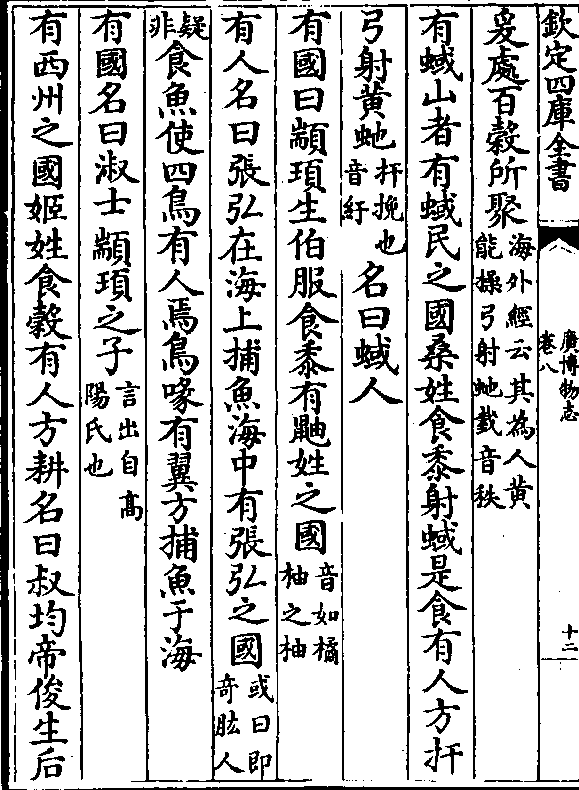 欽定四庫全書
廣博物志
卷八
十二
爰處百穀所聚海外經云其為人黃能操弓射虵𢧜音秩
有蜮山者有蜮民之國桑姓食黍射蜮是食有人方扞
弓射黃虵扞挽也音紆名曰蜮人
有國曰顓頊生伯服食黍有鼬姓之國音如橘柚之柚
有人名曰張弘在海上捕魚海中有張弘之國或曰即奇肱人
疑非食魚使四鳥有人焉鳥喙有翼方捕魚于海
有國名曰淑士顓頊之子言出自高陽氏也
有西州之國姬姓食穀有人方耕名曰叔均帝俊生后